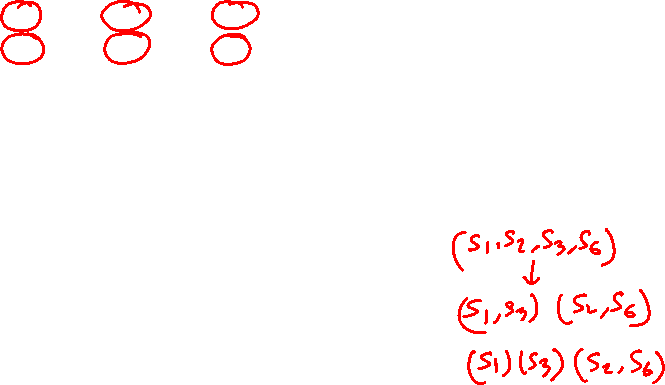 (S₁, S₂, S₃, S₆)
↓
(S₁, S₃) (S₂, S₆)
(S₁) (S₃) (S₂, S₆)